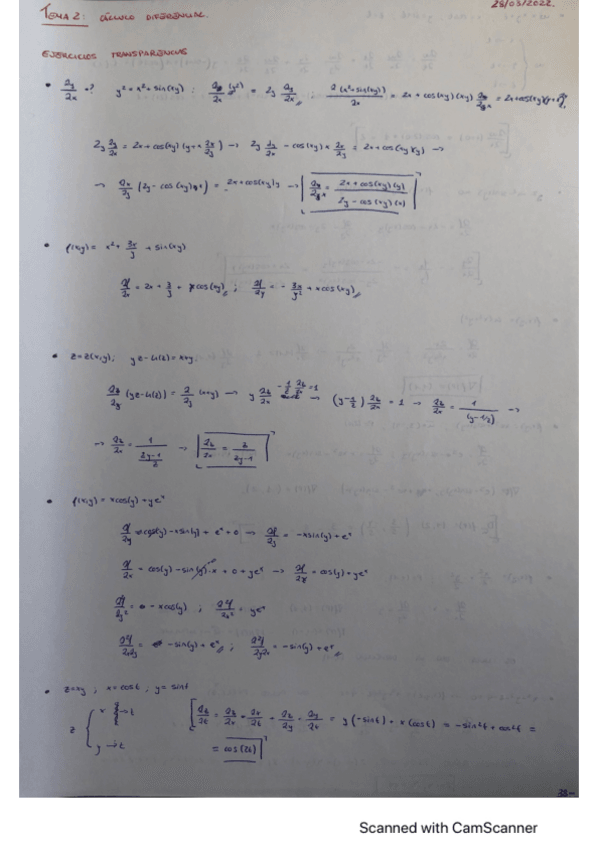 TEMA 2: CÁLCULO DIFERENCIAL. 28/03/2022.
EJERCICIOS TRANSPARENCIAS
• ∂y/∂x =? y² = x² + sin(xy) ; ∂/∂x (y²) = 2y ∂y/∂x ; ∂(x²+sin(xy))/∂x = 2x + cos(xy)
2y ∂y/∂x = 2x + cos(xy) → 2y ∂y/∂x - cos(xy) x = 2x + cos(xy) →
→ (2y - cos(xy) x) = 2x + cos(xy)y → = 2x + cos(xy)(y) / 2y - cos(xy)(x)
• f(x,y) = x² + 3x/y + sin(xy)
∂f/∂x = 2x + 3/y + y cos(xy) ; ∂f/∂y = - 3x/y² + x cos(xy)
• z = z(x,y) ; yz - ln(z) = x+y ;
(yz - ln(z)) = (x+y) → y ∂z/∂x - 1/z ∂z/∂x = 1 → (y - 1/z) ∂z/∂x = 1 → ∂z/∂x = 1/(y-1/z) →
→ ∂z/∂x = → ∂z/∂x = z/
• f(x,y) = xcos(y) + ye^x
∂f/∂y = -xsin(y) + e^x + 0 → ∂f/∂y = -xsin(y) + e^x
∂f/∂x = cos(y) - sin(y)·x + 0 + ye^x → = cos(y) + ye^x
= - xcos(y) ; = ye^x
= -sin(y) + e^x ; = -sin(y) + e^x
• z = xy ; x = cost ; y = sint
z { x → t ∂z/∂t = ∂z/∂x · ∂x/∂t + ∂z/∂y · = y(-sint) + x(cost) = -sin²t + cos²t =
y → t = cos(2t)
38
Scanned with CamScanner